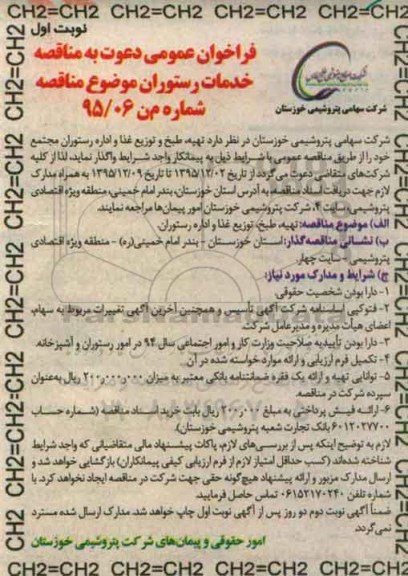 CH2=CH2 CH2=CH2 CH2=CH2 CH2=CH2 CH2=CH2
نوبت اول
فراخوان عمومی دعوت به مناقصه
خدمات رستوران موضوع مناقصه
شماره م‌ن ۹۵/۰۶
شرکت سهامی پتروشیمی خوزستان
شرکت سهامی پتروشیمی خوزستان در نظر دارد تهیه، طبخ و توزیع غذا و اداره رستوران مجتمع
خود را از طریق مناقصه عمومی با شرایط ذیل به پیمانکار واجد شرایط واگذار نماید، لذا از کلیه
شرکت‌های متقاضی دعوت می گردد از تاریخ ۱۳۹۵/۱۲/۰۲ تا تاریخ ۱۳۹۵/۱۲/۰۹ به همراه مدارک
لازم جهت دریافت اسناد مناقصه، به آدرس استان خوزستان، بندر امام خمینی، منطقه ویژه اقتصادی
پتروشیمی، سایت ۴، شرکت پتروشیمی خوزستان امور پیمان‌ها مراجعه نمایند.
الف) موضوع مناقصه: تهیه، طبخ، توزیع غذا و اداره رستوران.
ب) نشانی مناقصه‌گذار: استان خوزستان - بندر امام خمینی(ره) - منطقه ویژه اقتصادی
پتروشیمی - سایت چهار.
ج) شرایط و مدارک مورد نیاز:
۱- دارا بودن شخصیت حقوقی.
۲- فتوکپی اساسنامه شرکت آگهی تأسیس و همچنین آخرین آگهی تغییرات مربوط به سهام،
اعضای هیأت مدیره و مدیرعامل شرکت.
۳- دارا بودن تأییدیه صلاحیت وزارت کار و امور اجتماعی سال ۹۴ در امور رستوران و آشپزخانه.
۴- تکمیل فرم ارزیابی و ارائه موارد خواسته شده در آن.
۵- توانایی تهیه و ارائه یک فقره ضمانتنامه بانکی معتبر به میزان ۲۰۰,۰۰۰,۰۰۰ ریال به‌عنوان
سپرده شرکت در مناقصه.
۶- ارائه فیش پرداختی به مبلغ ۲۰۰,۰۰۰ ریال بابت خرید اسناد مناقصه (شماره حساب
۶۰۱۲۰۲۷۷۰۰ بانک تجارت شعبه پتروشیمی خوزستان).
لازم به توضیح اینکه پس از بررسی‌های لازم، پاکات پیشنهاد مالی متقاضیانی که واجد شرایط
شناخته شده‌اند (کسب حداقل امتیاز لازم از فرم ارزیابی کیفی پیمانکاران) بازگشایی خواهد شد و
ارسال مدارک مزبور و ارائه پیشنهاد هیچ‌گونه حقی جهت شرکت در مناقصه ایجاد نخواهد کرد. با
شماره تلفن ۰۶۱۵۲۱۷۰۲۴۰ تماس حاصل فرمایید.
ضمناً آگهی نوبت دوم دو روز پس از آگهی نوبت اول چاپ خواهد شد. مدارک ارسال شده مسترد
نمی‌گردد.
امور حقوقی و پیمان‌های شرکت پتروشیمی خوزستان
CH2=CH2 CH2=CH2 CH2=CH2 CH2=CH2 CH2=CH2